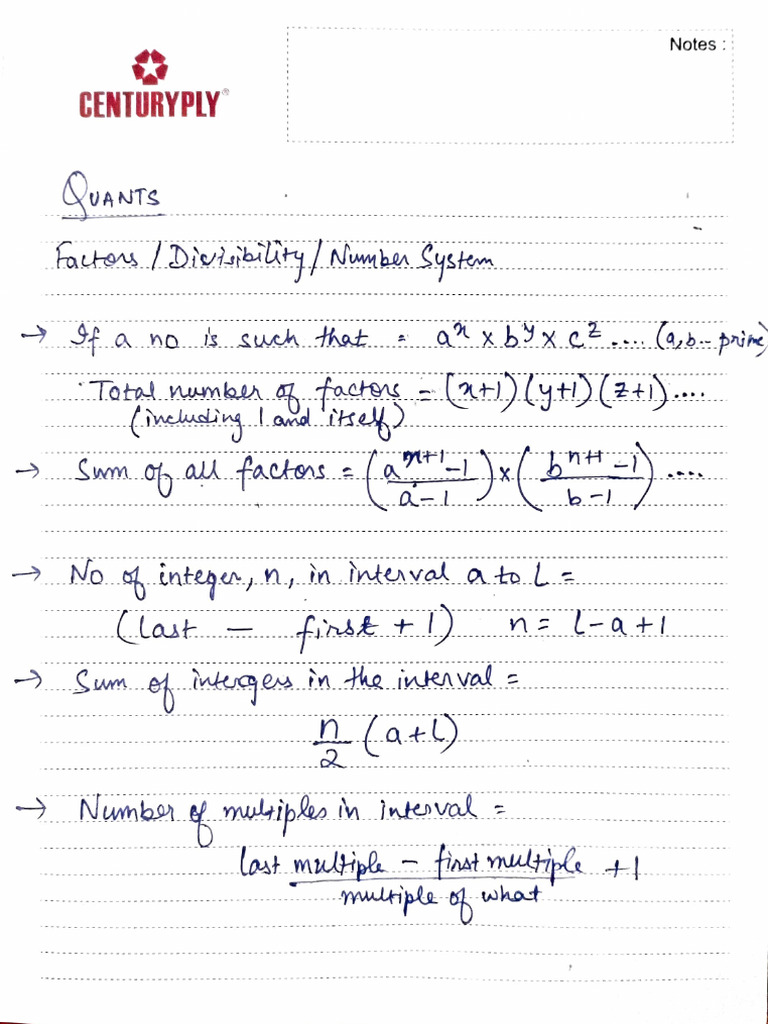 Notes :
CENTURYPLY®
QUANTS
Factors / Divisibility / Number System
→ If a no is such that = a^x × b^y × c^z .... (a,b-- prime)
Total number of factors = (x+1) (y+1) (z+1) ....
(including 1 and itself)
→ Sum of all factors = (a^(x+1) - 1 / a - 1) × (b^(n+1) - 1 / b - 1) ....
→ No of integer, n, in interval a to L =
(last - first + 1) n = L - a + 1
→ Sum of intergers in the interval =
n/2 (a + L)
→ Number of multiples in interval =
last multiple - first multiple + 1
multiple of what